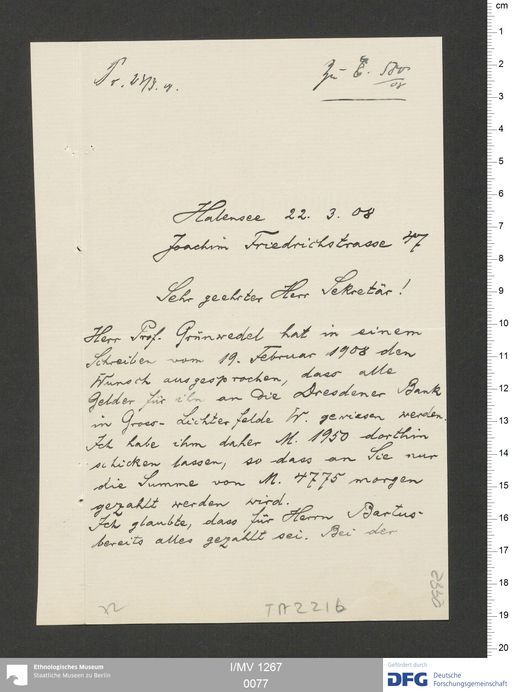 Zu E. 580/08
Halensee 22. 3. 08
Joachim Friedrichstrasse 47
Sehr geehrter Herr Sekretär!
Herr Prof. Grünwedel hat in einem
Schreiben vom 19. Februar 1908 den
Wunsch ausgesprochen, dass alle
Gelder für ihn an die Dresdener Bank
in Gross-Lichterfelde W. gewiesen werden.
Ich habe ihm daher M. 1950 dorthin
schicken lassen, so dass an Sie nur
die Summe von M. 4775 morgen
gezahlt werden wird.
Ich glaubte, dass für Herrn Bartus
bereits alles gezahlt sei. Bei der
TA 2216
cm
1
2
3
4
5
6
7
8
9
10
11
12
13
14
15
16
17
18
19
20
Ethnologisches Museum
Staatliche Museen zu Berlin
I/MV 1267
0077
Gefördert durch
DFG Deutsche
Forschungsgemeinschaft